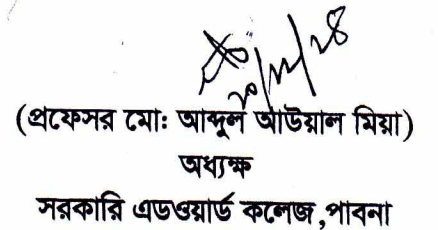 ২০/১২/২৪
(প্রফেসর মো: আব্দুল আউয়াল মিয়া)
অধ্যক্ষ
সরকারি এডওয়ার্ড কলেজ,পাবনা